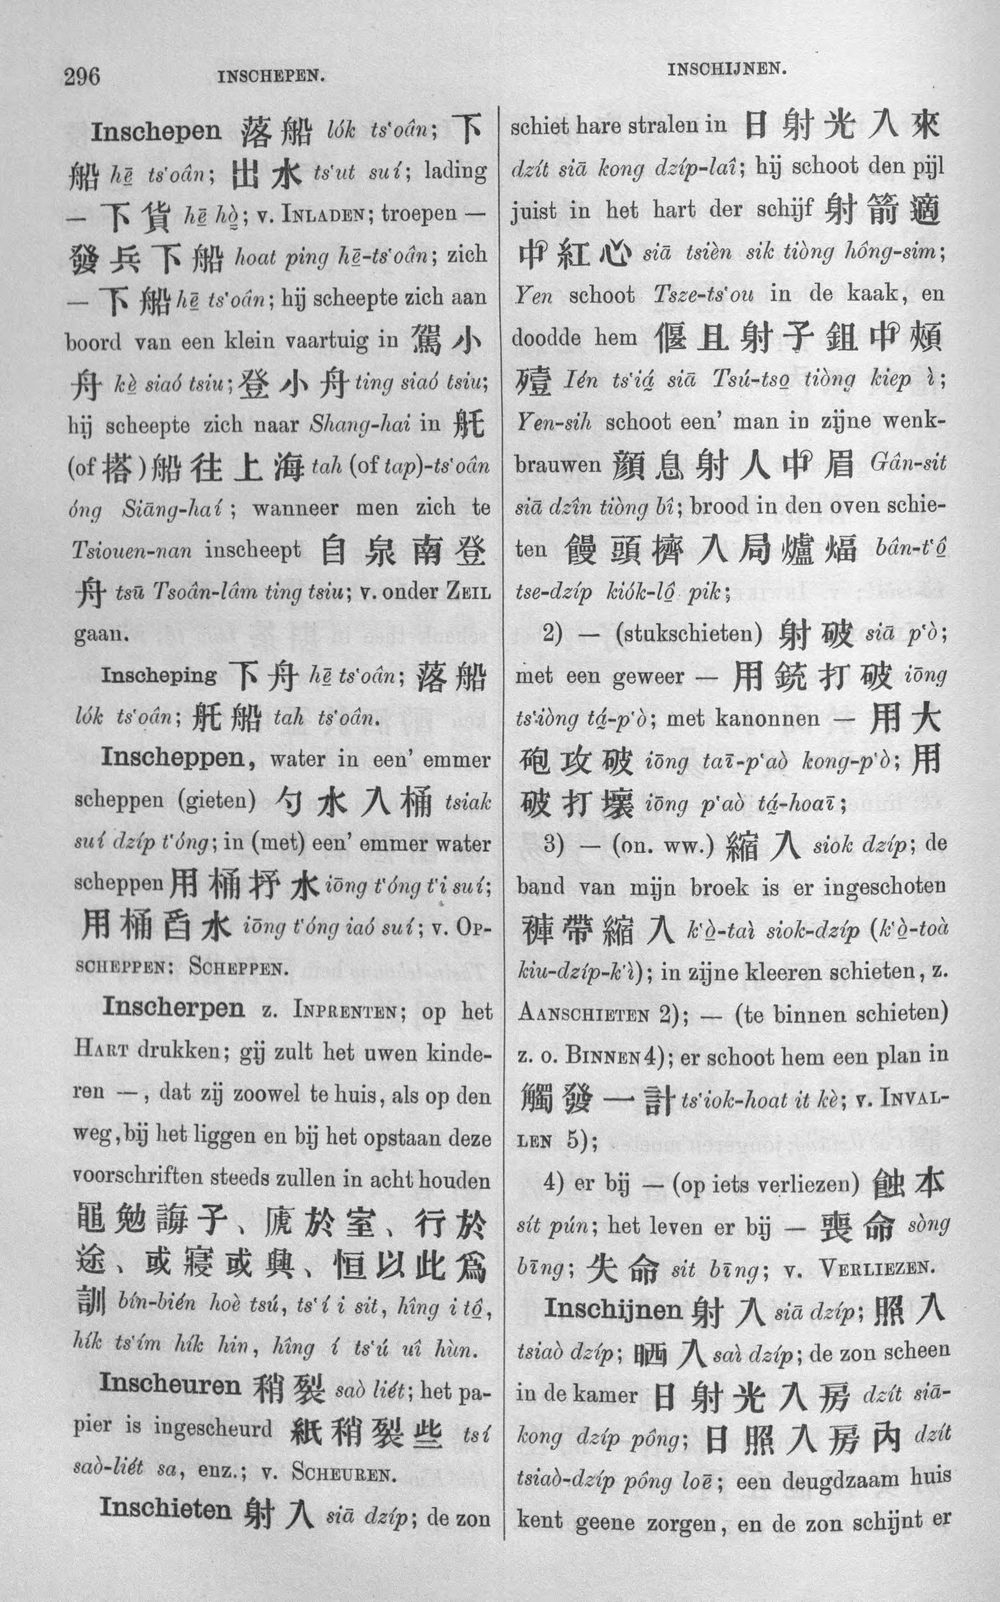 296
INSCHEPEN.
INSCHIJNEN.
Inschepen 落船 lók tsʻoân; 下
船 hē̤ tsʻoân; 出水 tsʻut suí; lading
— 下貨 hē̤ hò̤; v. INLADEN; troepen —
發兵下船 hoat ping hē̤-tsʻoân; zich
— 下船 hē̤ tsʻoân; hij scheepte zich aan
boord van een klein vaartuig in 駕小
舟 kè siaó tsiu; 登小舟 ting siaó tsiu;
hij scheepte zich naar Shang-hai in 䑜
(of 搭)船往上海 tah (of tap)-tsʻoân
óng Siāng-haí; wanneer men zich te
Tsiouen-nan inscheept 自泉南登
舟 tsū Tsoân-lâm ting tsiu; v. onder ZEIL
gaan.
Inscheping 下舟 hē̤ tsʻoân; 落船
lók tsʻoân; 䑜船 tah tsʻoân.
Inscheppen, water in een' emmer
scheppen (gieten) 勺水入桶 tsiak
suí dzíp tʻóng; in (met) een' emmer water
scheppen 用桶抒水 iōng tʻóng tʻi suí;
用桶舀水 iōng tʻóng iaó suí; v. OP-
SCHEPPEN: SCHEPPEN.
Inscherpen z. INPRENTEN; op het
HART drukken; gij zult het uwen kinde-
ren —, dat zij zoowel te huis, als op den
weg, bij het liggen en bij het opstaan deze
voorschriften steeds zullen in acht houden
黽勉誨子、處於室、行於
途、或寢或興、恒以此爲
訓 bín-bién hoè tsú, tsʻí i sit, hîng i tô̤,
hík tsʻím hík hin, hîng í tsʻú uî hùn.
Inscheuren 稍裂 saò liét; het pa-
pier is ingescheurd 紙稍裂些 tsí
saò-liét sa, enz.; v. SCHEUREN.
Inschieten 射入 siā dzíp; de zon
schiet hare stralen in 日射光入來
dzít siā kong dzíp-laî; hij schoot den pijl
juist in het hart der schijf 射箭適
中紅心 siā tsièn sik tiòng hông-sim;
Yen schoot Tsze-tsʻou in de kaak, en
doodde hem 偃且射子鉏中頰
殪 Ién tsʻiá̤ siā Tsú-tso̤ tiòng kiep ì;
Yen-sih schoot een' man in zijne wenk-
brauwen 顔息射人中眉 Gân-sit
siā dzîn tiòng bî; brood in den oven schie-
ten 饅頭擠入局爐煏 bân-tʻô̤
tse-dzíp kiók-lô̤ pik;
2) — (stukschieten) 射破 siā pʻò;
met een geweer — 用銃打破 iōng
tsʻiòng tá̤-pʻò; met kanonnen — 用大
砲攻破 iōng taī-pʻaò kong-pʻò; 用
破打壞 iōng pʻaò tá̤-hoaī;
3) — (on. ww.) 縮入 siok dzíp; de
band van mijn broek is er ingeschoten
褲帶縮入 kʻò̤-taì siok-dzíp (kʻò̤-toà
kiu-dzíp-kʻì); in zijne kleeren schieten, z.
AANSCHIETEN 2); — (te binnen schieten)
z. o. BINNEN 4); er schoot hem een plan in
觸發一計 tsʻiok-hoat it kè; v. INVAL-
LEN 5);
4) er bij — (op iets verliezen) 蝕本
sít pún; het leven er bij — 喪命 sòng
bīng; 失命 sit bīng; v. VERLIEZEN.
Inschijnen 射入 siā dzíp; 照入
tsiaò dzíp; 晒入 saì dzíp; de zon scheen
in de kamer 日射光入房 dzít siā-
kong dzíp pông; 日照入房內 dzít
tsiaò-dzíp pông loē; een deugdzaam huis
kent geene zorgen, en de zon schijnt er